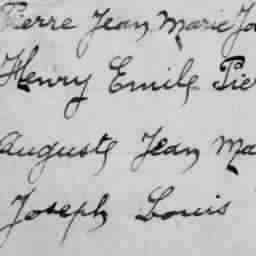 Pierre Jean Marie Jo
Henry Emile Pier
Auguste Jean Ma
Joseph Louis